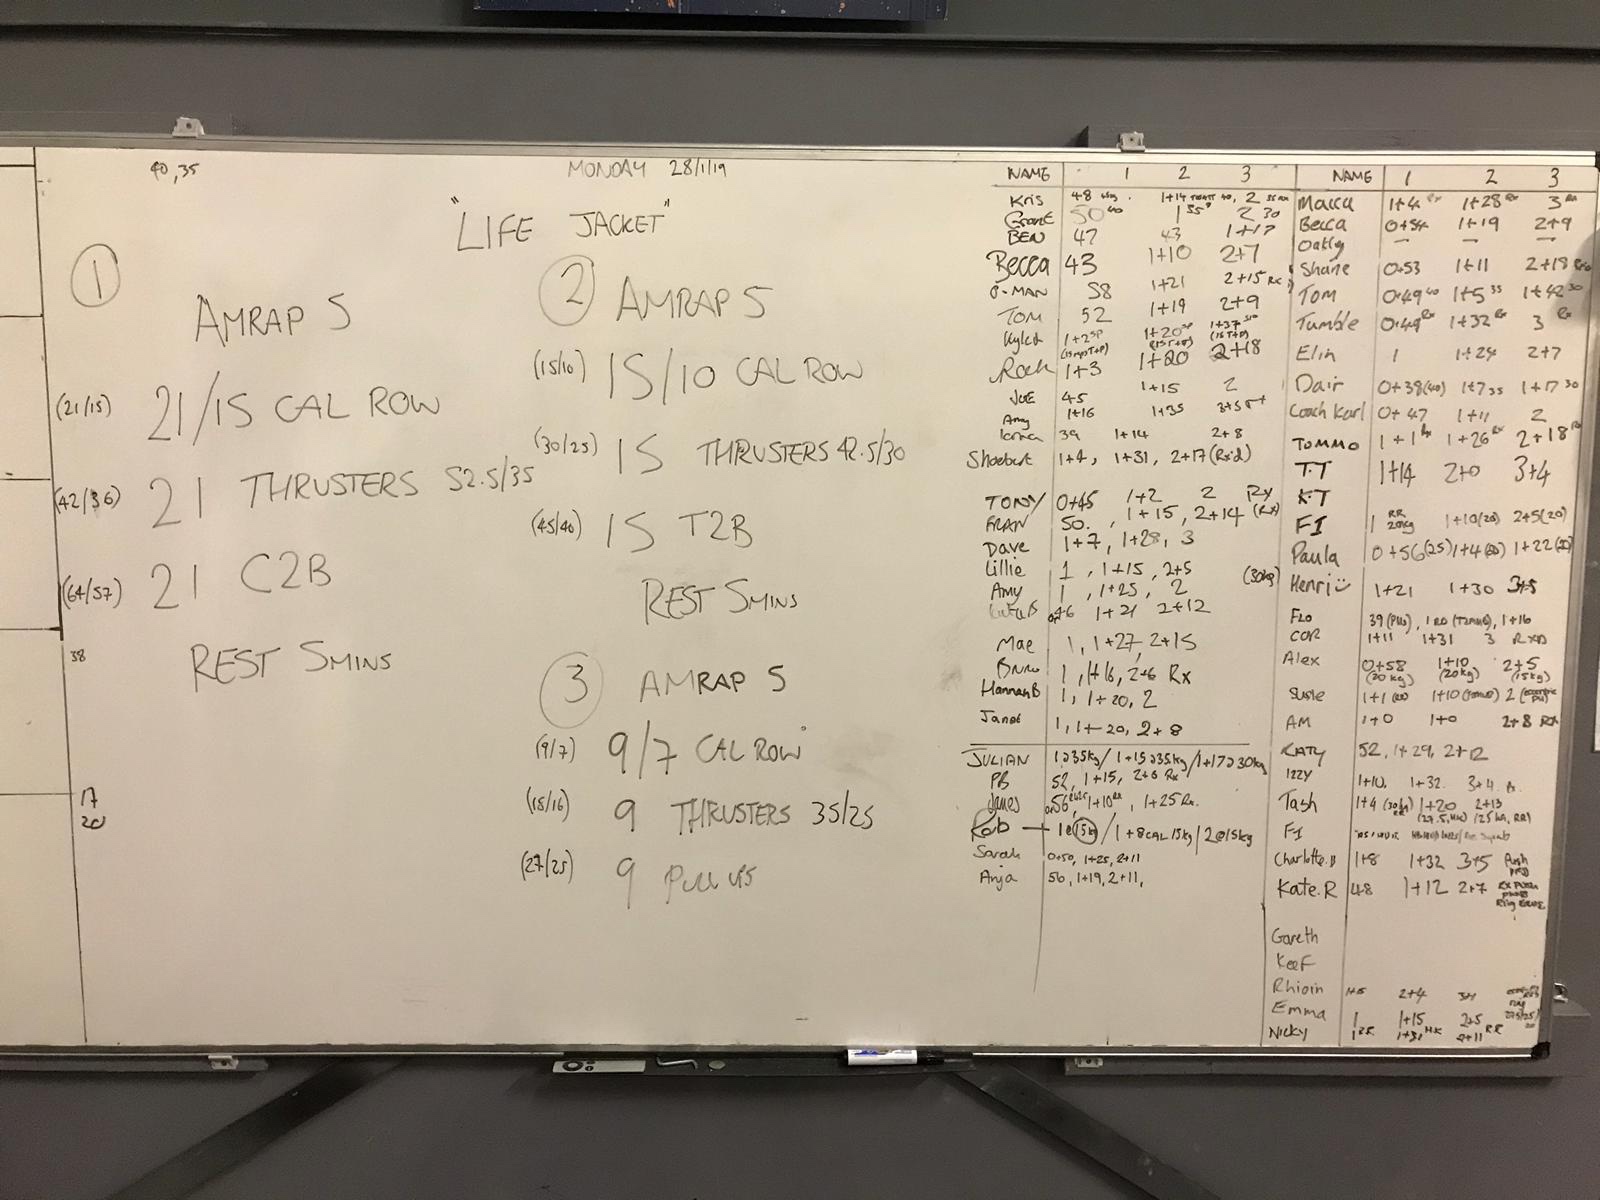 40,35
MONDAY 28/1/19
"LIFE JACKET"
1
AMRAP 5
(21/15) 21/15 CAL ROW
(42/36) 21 THRUSTERS 52.5/35
(64/57) 21 C2B
REST 5MINS
38
17
20
2
AMRAP 5
(15/10) 15/10 CAL ROW
(30/25) 15 THRUSTERS 42.5/30
(45/40) 15 T2B
REST 5MINS
3
AMRAP 5
(9/7) 9/7 CAL ROW
(18/16) 9 THRUSTERS 35/25
(27/25) 9 PULL UPS
NAME 1 2 3
Kris 48 1+14
50 40 1 55 2 30
BEN 47 43 1+17
Becca 43 1+10 2+7
58 1+21 2+15
TOM 52 1+19 2+9
1+2 1+20 1+37
1+3 1+20 2+18
JOE 45 1+15 2
Amy 1+16 1+35
39 1+14 2+8
1+4, 1+31, 2+17 (Rx'd)
TONY 0+45 1+2 2 Rx
FRAN 50. , 1+15, 2+14 (Rx)
Dave 1+7, 1+28, 3
Lillie 1 , 1+15, 2+5
(30kg)
Amy 1 , 1+25, 2
46 1+21 2+12
Mae 1, 1+27, 2+15
Bruno 1, 1+16, 2+6 Rx
Hannah B 1, 1+20, 2
Janet 1, 1+20, 2+8
JULIAN 1@35kg/ 1+15@35kg/1+17@30kg
PB 52, 1+15, 2+8 Rx
James 56, 1+10 , 1+25 Rx.
Rob 1@15kg / 1+8CAL 15kg/ 2@15kg
Sarah 0+50, 1+25, 2+11
Anja 56, 1+19, 2+11,
NAME 1 2 3
Macca 1+4 Rx 1+28 Rx 3 Rx
Becca 0+54 1+19 2+9
Oatly — — —
Shane 0+53 1+11 2+18
Tom 0+49 40 1+5 35 1+42 30
Tumble 0+49 Rx 1+32 Rx 3 Rx
Elin 1 1+24 2+7
Dair 0+38(40) 1+7 35 1+17 30
Coach Karl 0+47 1+11 2
TOMMO 1+1 Rx 1+26 Rx 2+18 Rx
TT 1+14 2+0 3+4
KT
FI 1 RR 20kg 1+10(20) 2+5(20)
Paula 0+56(25) 1+4(20) 1+22(20)
Henri 1+21 1+30
Flo 39 1+16
COR 1+11 1+31 3 RXD
Alex 0+58 1+10 2+5
(20kg) (20kg) (15kg)
Susie 1+1 1+10 2
AM 1+0 1+0 2+8 RX
KATY 52, 1+29, 2+12
IZZY 1+10, 1+32. 3+4.
Tash 1+4 1+20 2+13
FI
Charlotte.B 1+8 1+32 3+5
Kate.R 48 1+12 2+7
Gareth
Keef
Rhioin 2+4
Emma 1 1+15 2+5
Nicky 1 RR 1+31 HK 2+11 RR